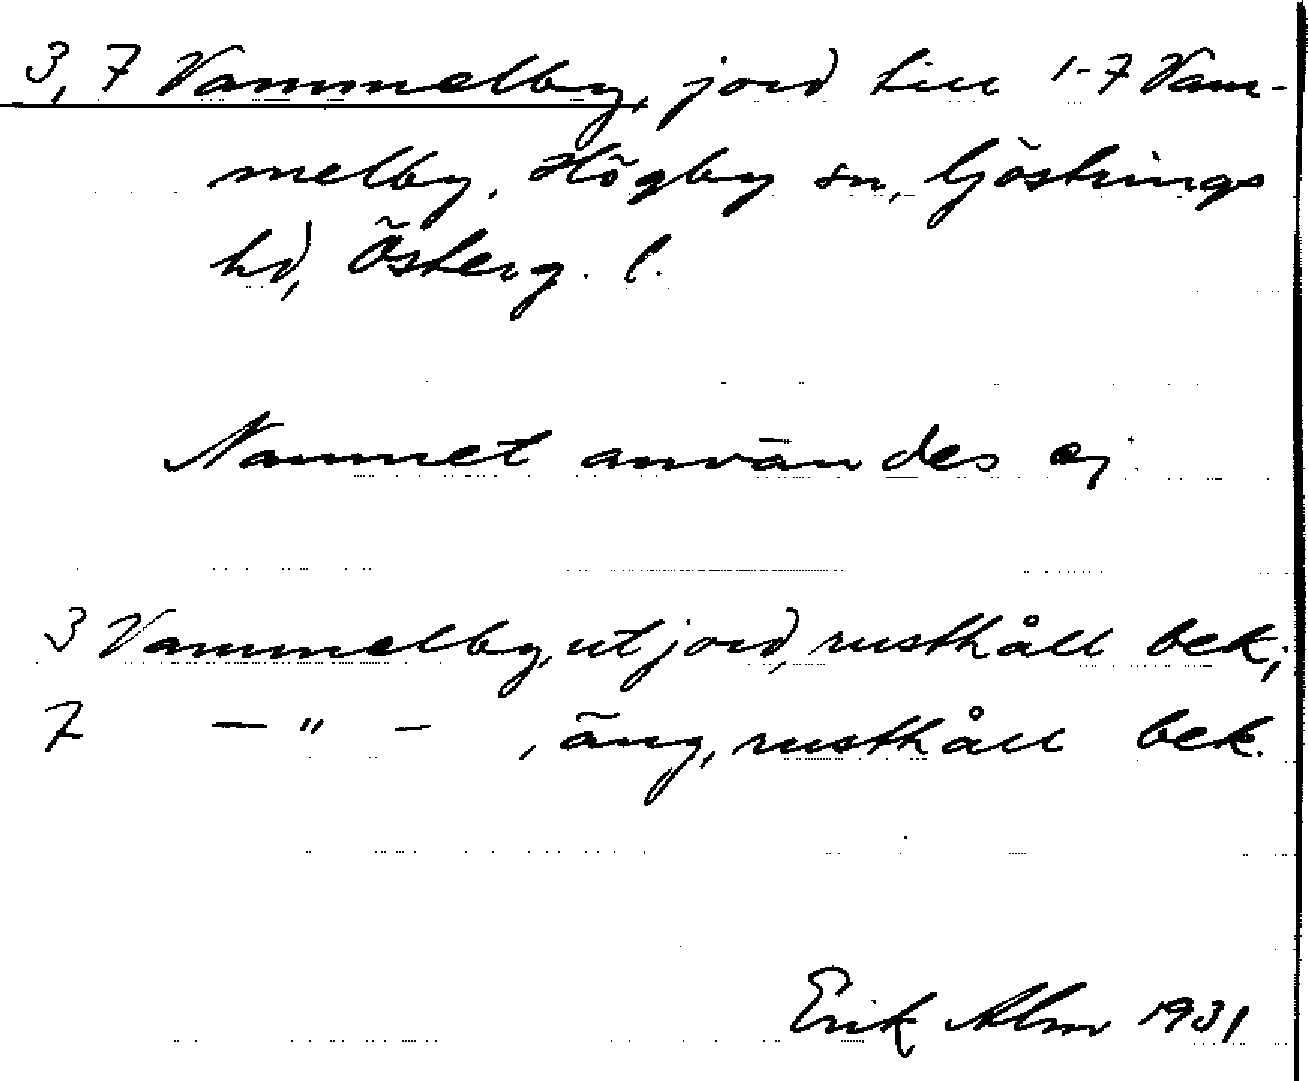 3, 7 Vammelby, jord till 1-7 Vam-
melby, Högby sn, Göstrings
hd, Österg. l.
Namnet användes ej
3 Vammelby, utjord, rusthåll bek,;
7 — " — , äng, rusthåll bek.
Erik Alm 1931